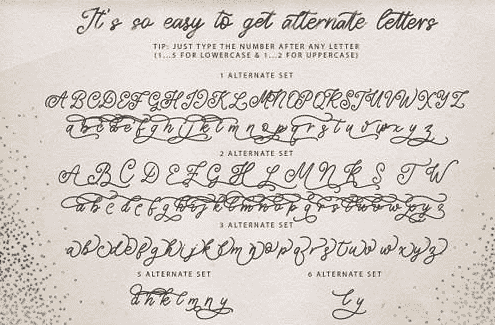 It's so easy to get alternate letters
TIP: JUST TYPE THE NUMBER AFTER ANY LETTER
(1...5 FOR LOWERCASE & 1...2 FOR UPPERCASE)
1 ALTERNATE SET
ABCDEFGHIJKLMNOPQRSTUVWXYZ
abcdefghijklmnopqrstuvwxyz
2 ALTERNATE SET
ABCDEFGHLMNKSTW
abcdefghijklmnopqrstuvwxyz
3 ALTERNATE SET
abcdefghijklmnopqrstuvwxyz
5 ALTERNATE SET 6 ALTERNATE SET
dhklmny ly